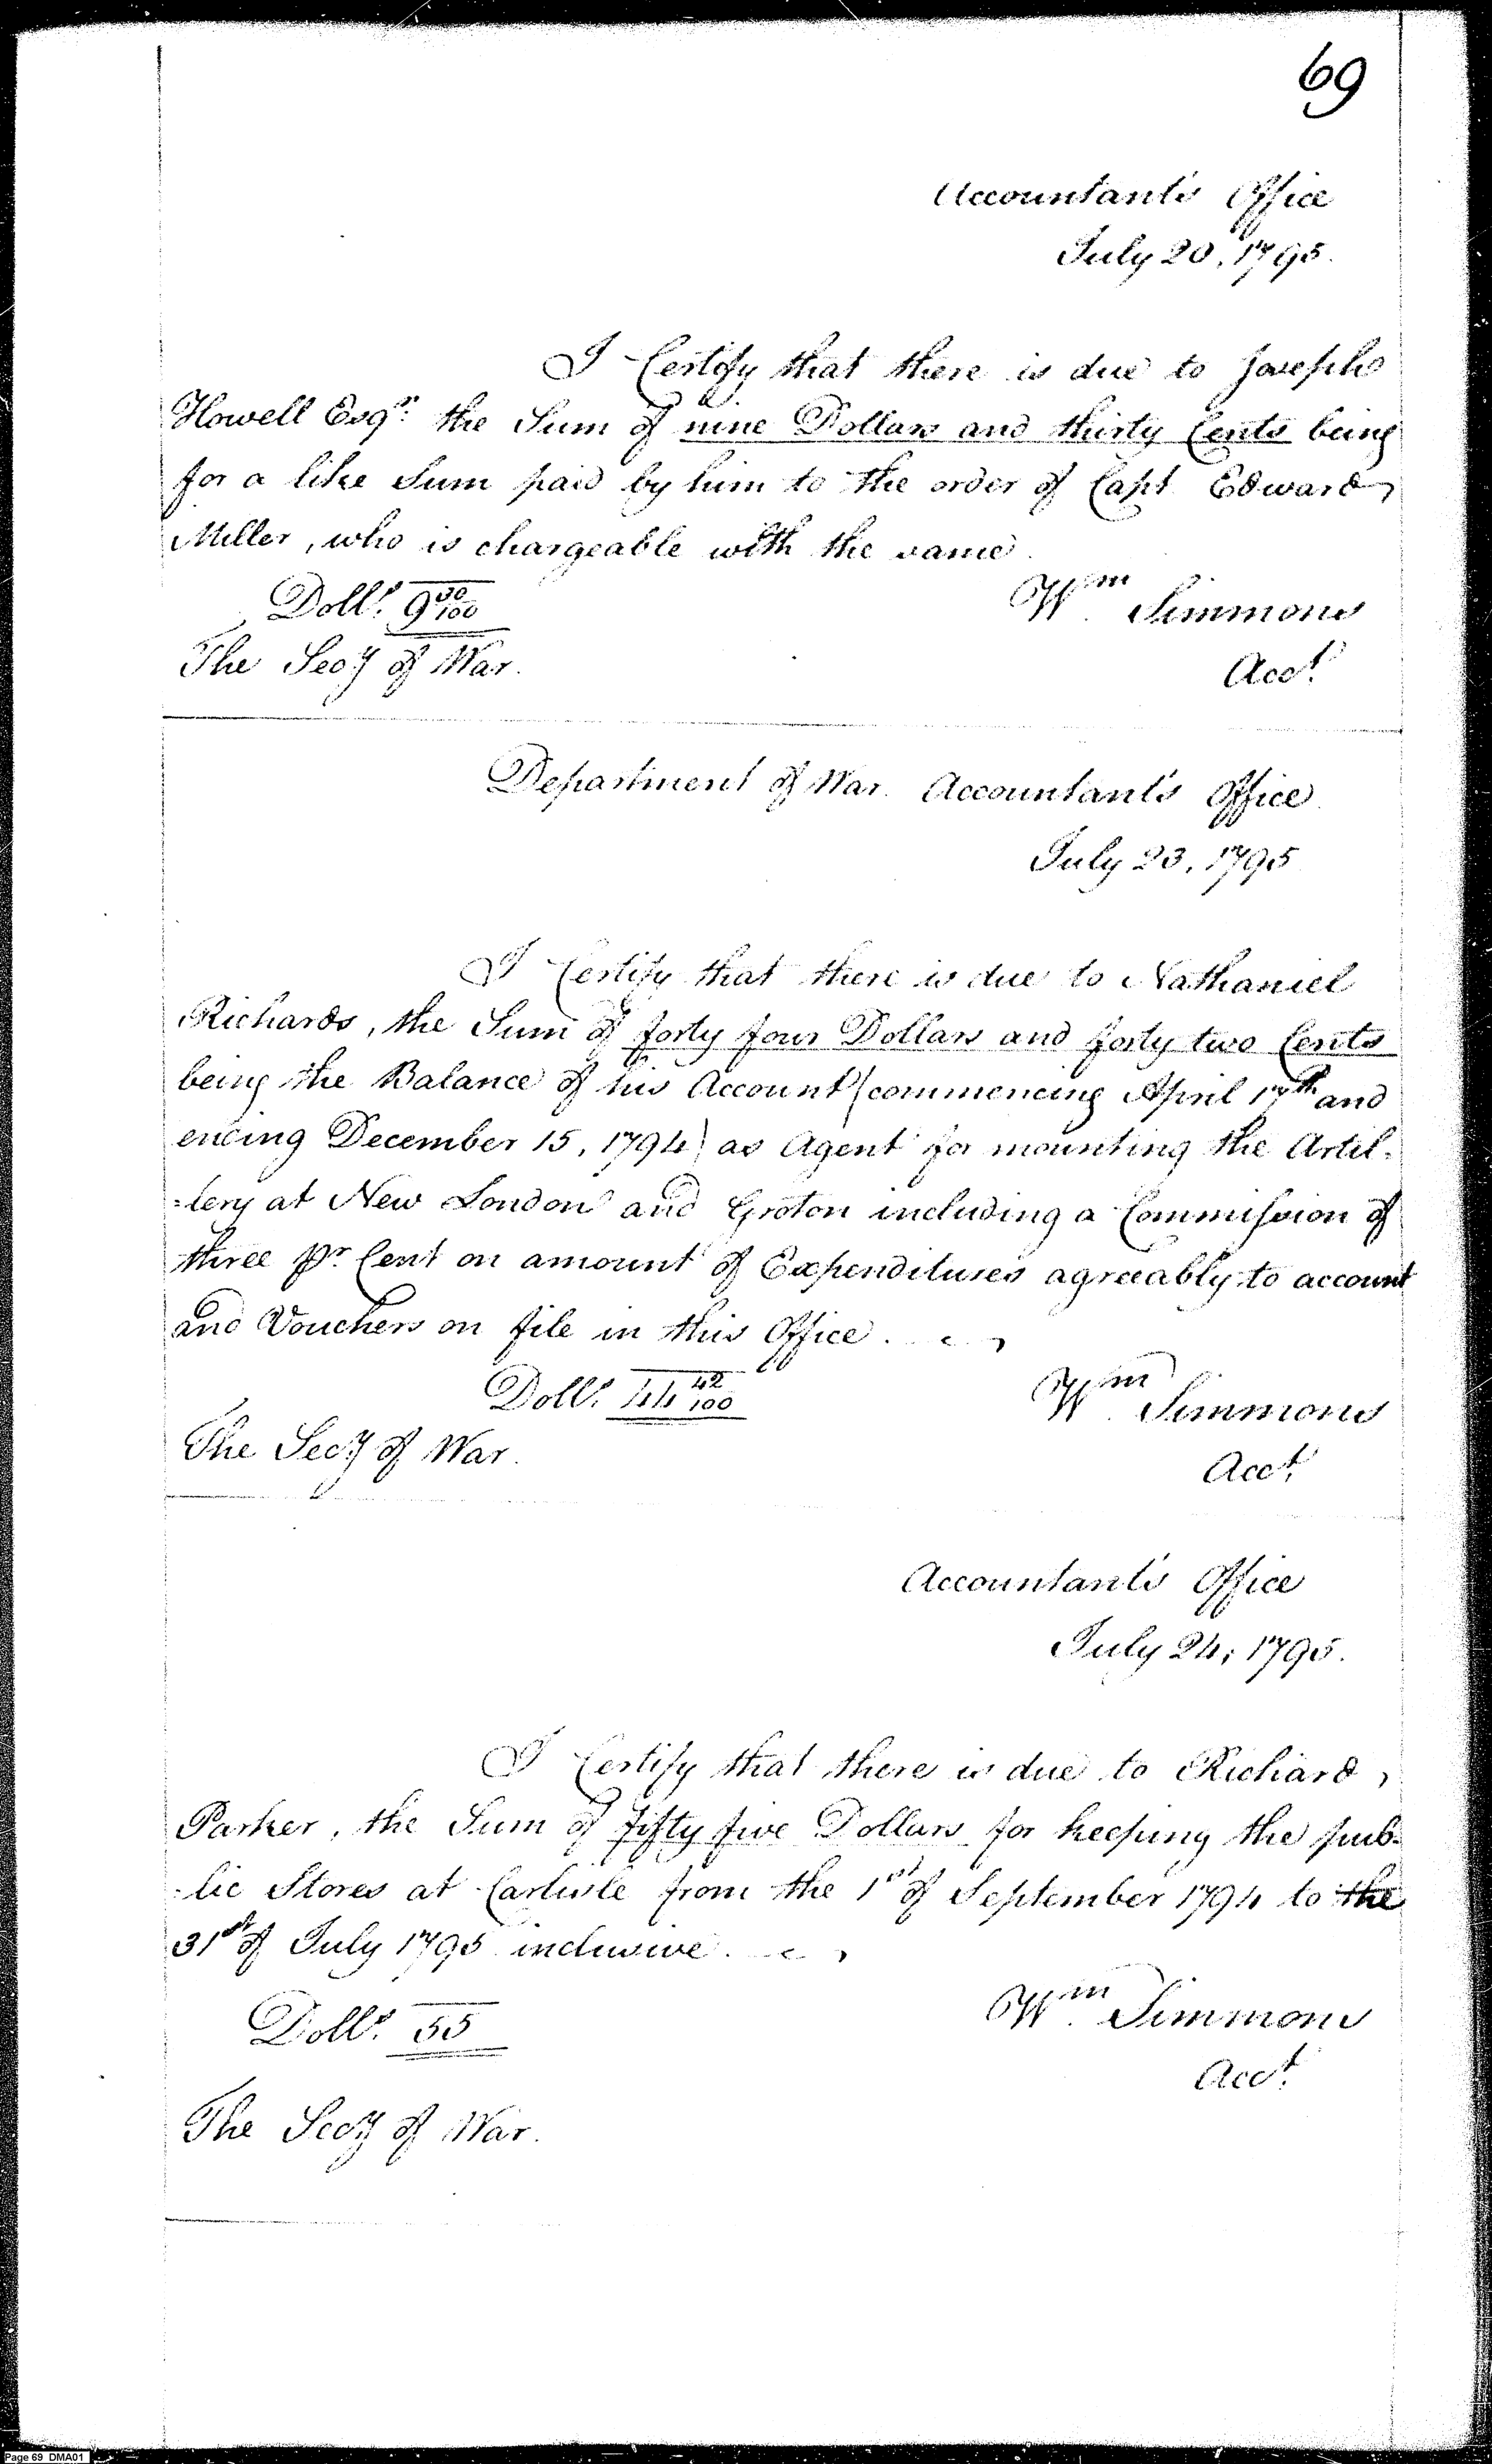 69
Accountant's Office
July 20, 1795.
I Certify that there is due to Joseph
Howell Esqr. the Sum of nine Dollars and thirty Cents being
for a like Sum paid by him to the order of Capt Edward
Miller, who is chargeable with the same.
Dolls. 9 30/100
Wm. Simmons
The Secy of War.
Acct.
Department of War. Accountant's Office.
July 23, 1795
I Certify that there is due to Nathaniel
Richards, the Sum of forty four Dollars and forty two Cents
being the Balance of his Account (commencing April 17th and
ending December 15, 1794) as Agent for mounting the Artil-
=lery at New London and Groton including a Commission of
three Pr. Cent on amount of Expenditures agreeably to account
and Vouchers on file in this Office.
Dolls. 44 42/100
Wm. Simmons
The Secy of War.
Acct.
Accountant's Office
July 24, 1795.
I Certify that there is due to Richard
Parker, the Sum of fifty five Dollars for keeping the pub-
=lic Stores at Carlisle from the 1st of September 1794 to the
31st of July 1795 inclusive.
Dolls. 55
Wm. Simmons
Acct.
The Secy of War.
Page 69 DMA01